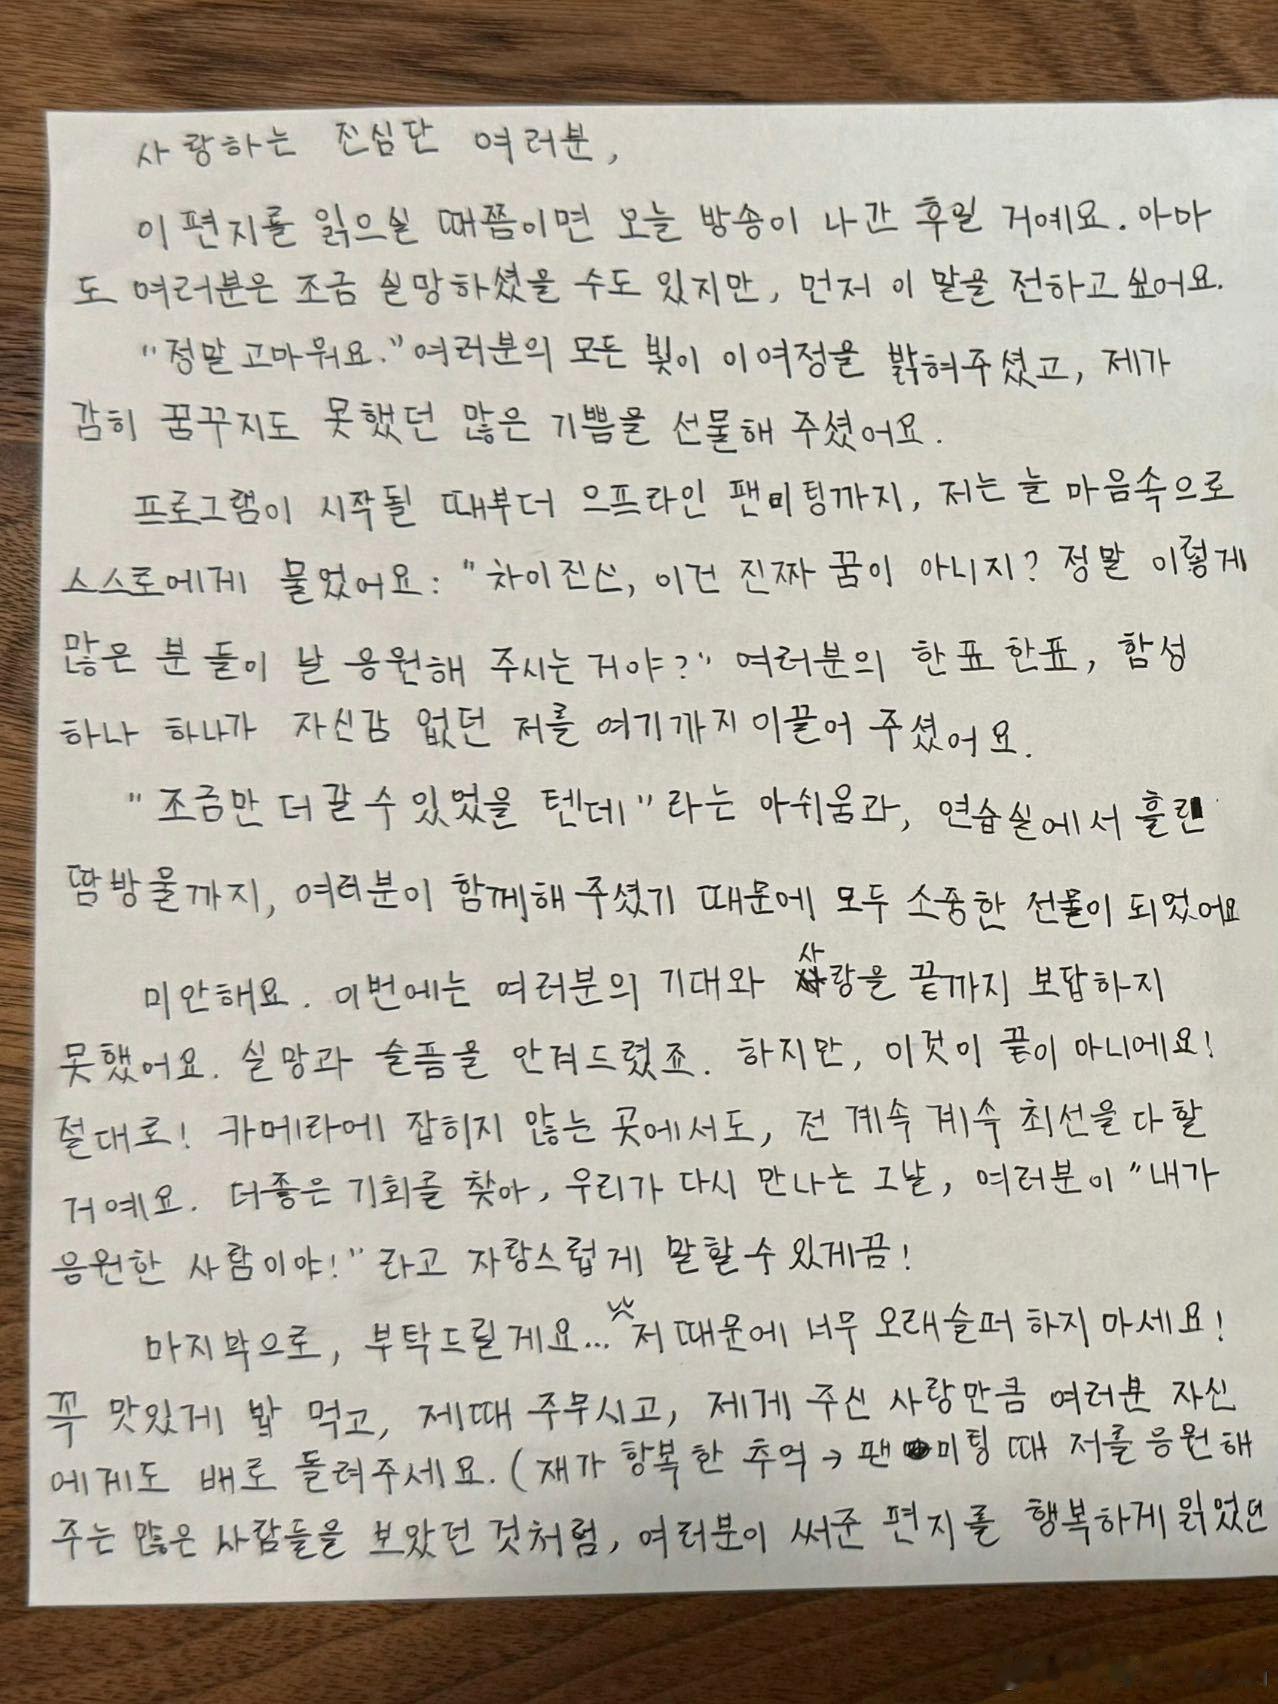 사랑하는 진심단 여러분,
이 편지를 읽으실 때쯤이면 오늘 방송이 나간 후일 거예요. 아마
도 여러분은 조금 실망하셨을 수도 있지만, 먼저 이 말을 전하고 싶어요.
"정말 고마워요." 여러분의 모든 빛이 이 여정을 밝혀주셨고, 제가
감히 꿈꾸지도 못했던 많은 기쁨을 선물해 주셨어요.
프로그램이 시작될 때부터 으프라인 팬미팅까지, 저는 늘 마음속으로
스스로에게 물었어요: "차이진신, 이건 진짜 꿈이 아니지? 정말 이렇게
많은 분들이 날 응원해 주시는거야?" 여러분의 한표 한표, 함성
하나 하나가 자신감 없던 저를 여기까지 이끌어 주셨어요.
"조금만 더 갈 수 있었을 텐데"라는 아쉬움과, 연습실에서 흘린
땀방울까지, 여러분이 함께해 주셨기 때문에 모두 소중한 선물이 되었어요
미안해요. 이번에는 여러분의 기대와 사랑을 끝까지 보답하지
못했어요. 실망과 슬픔을 안겨드렸죠. 하지만, 이것이 끝이 아니에요!
절대로! 카메라에 잡히지 않는 곳에서도, 전 계속 계속 최선을 다할
거예요. 더좋은 기회를 찾아, 우리가 다시 만나는 그날, 여러분이 "내가
응원한 사람이야!"라고 자랑스럽게 말할 수 있게끔!
마지막으로, 부탁드릴게요... 저 때문에 너무 오래 슬퍼하지 마세요!
꼭 맛있게 밥 먹고, 제때 주무시고, 제게 주신 사랑만큼 여러분 자신
에게도 배로 돌려주세요. (재가 항복한 추억 → 팬미팅 때 저를 응원해
주는 많은 사람들을 보았던 것처럼, 여러분이 써준 편지를 행복하게 읽었던